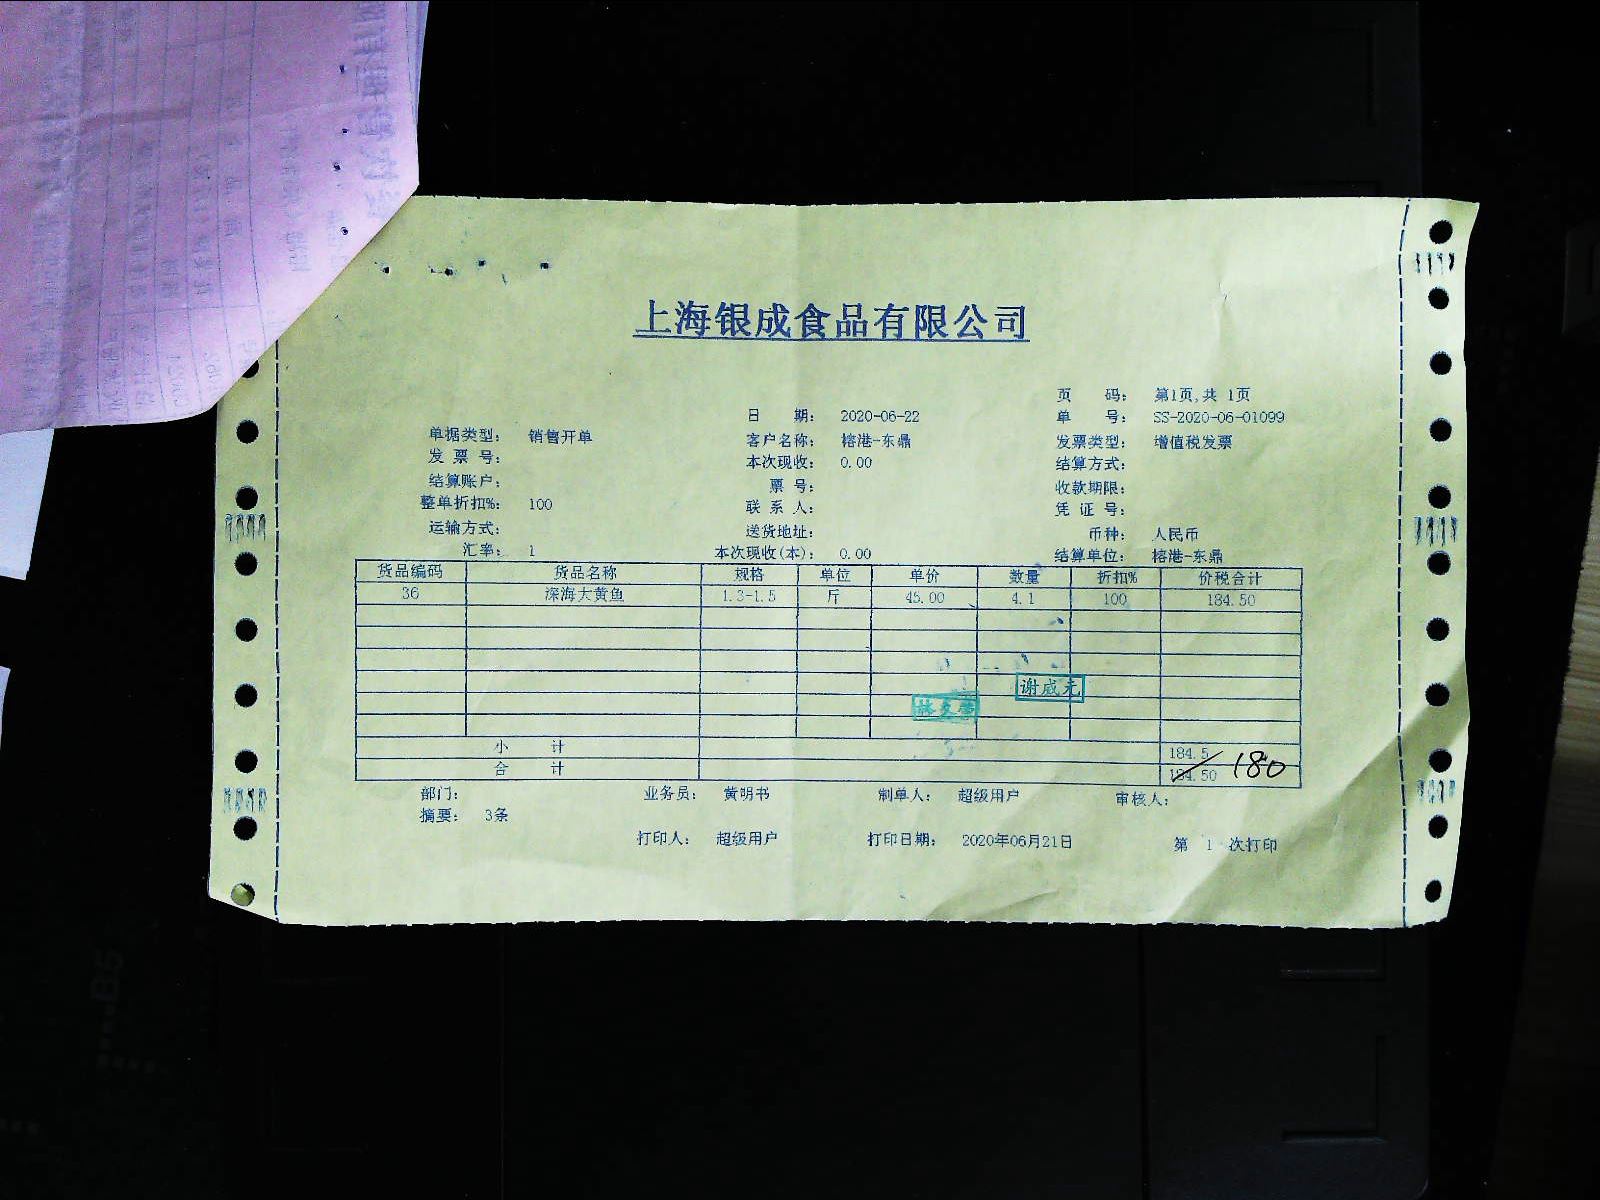 上海银成食品有限公司
页 码: 第1页,共 1页
日 期: 2020-06-22 单 号: SS-2020-06-01099
单据类型: 销售开单 客户名称: 榕港-东鼎 发票类型: 增值税发票
发 票 号: 本次现收: 0.00 结算方式:
结算账户: 票 号: 收款期限:
整单折扣%: 100 联 系 人: 凭 证 号:
运输方式: 送货地址: 币种: 人民币
汇率: 1 本次现收(本): 0.00 结算单位: 榕港-东鼎
货品编码 货品名称 规格 单位 单价 数量 折扣% 价税合计
36 深海大黄鱼 1.3-1.5 斤 45.00 4.1 100 184.50
谢威元
小 计 184.5
合 计 184.50 180
部门: 业务员: 黄明书 制单人: 超级用户 审核人:
摘要: 3条
打印人: 超级用户 打印日期: 2020年06月21日 第 1 次打印